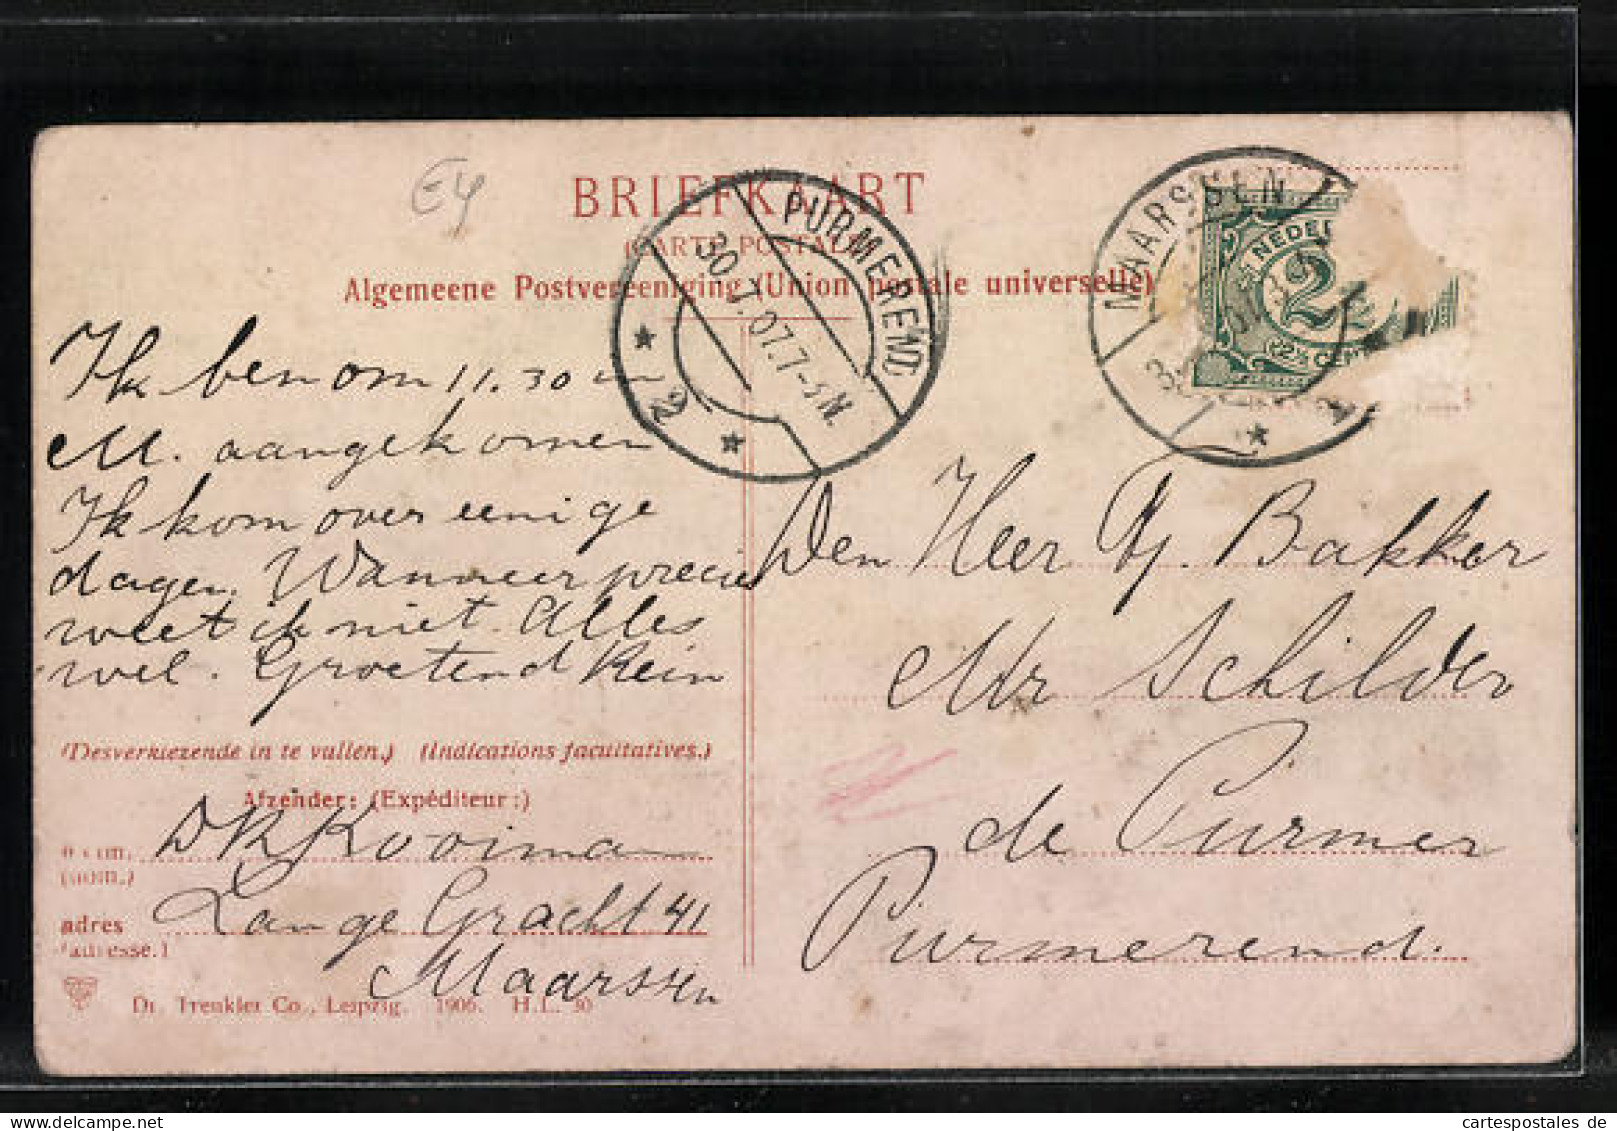 E4
BRIEFKAART
(CARTE POSTALE)
Algemeene Postvereeniging (Union postale universelle)
PURMEREND
30.7.07.7-8N.
2
MAARSSEN
NEDERL
2½
(2½ CENT
Ik ben om 11.30 in
M. aangekomen
Ik kom over eenige
dagen. Wanneer precies
weet ik niet. Alles
wel. Groetend Rein
Den Heer Bakker
Mr Schilder
de Purmer
Purmerend.
(Desverkiezende in te vullen.) (Indications facultatives.)
Afzender: (Expéditeur:)
naam. Kooiman
(nom.)
adres Lange Gracht 41
(adresse.) Maarssen
Dr. Trenkler Co., Leipzig. 1906. H.L. 30
cartespostales de